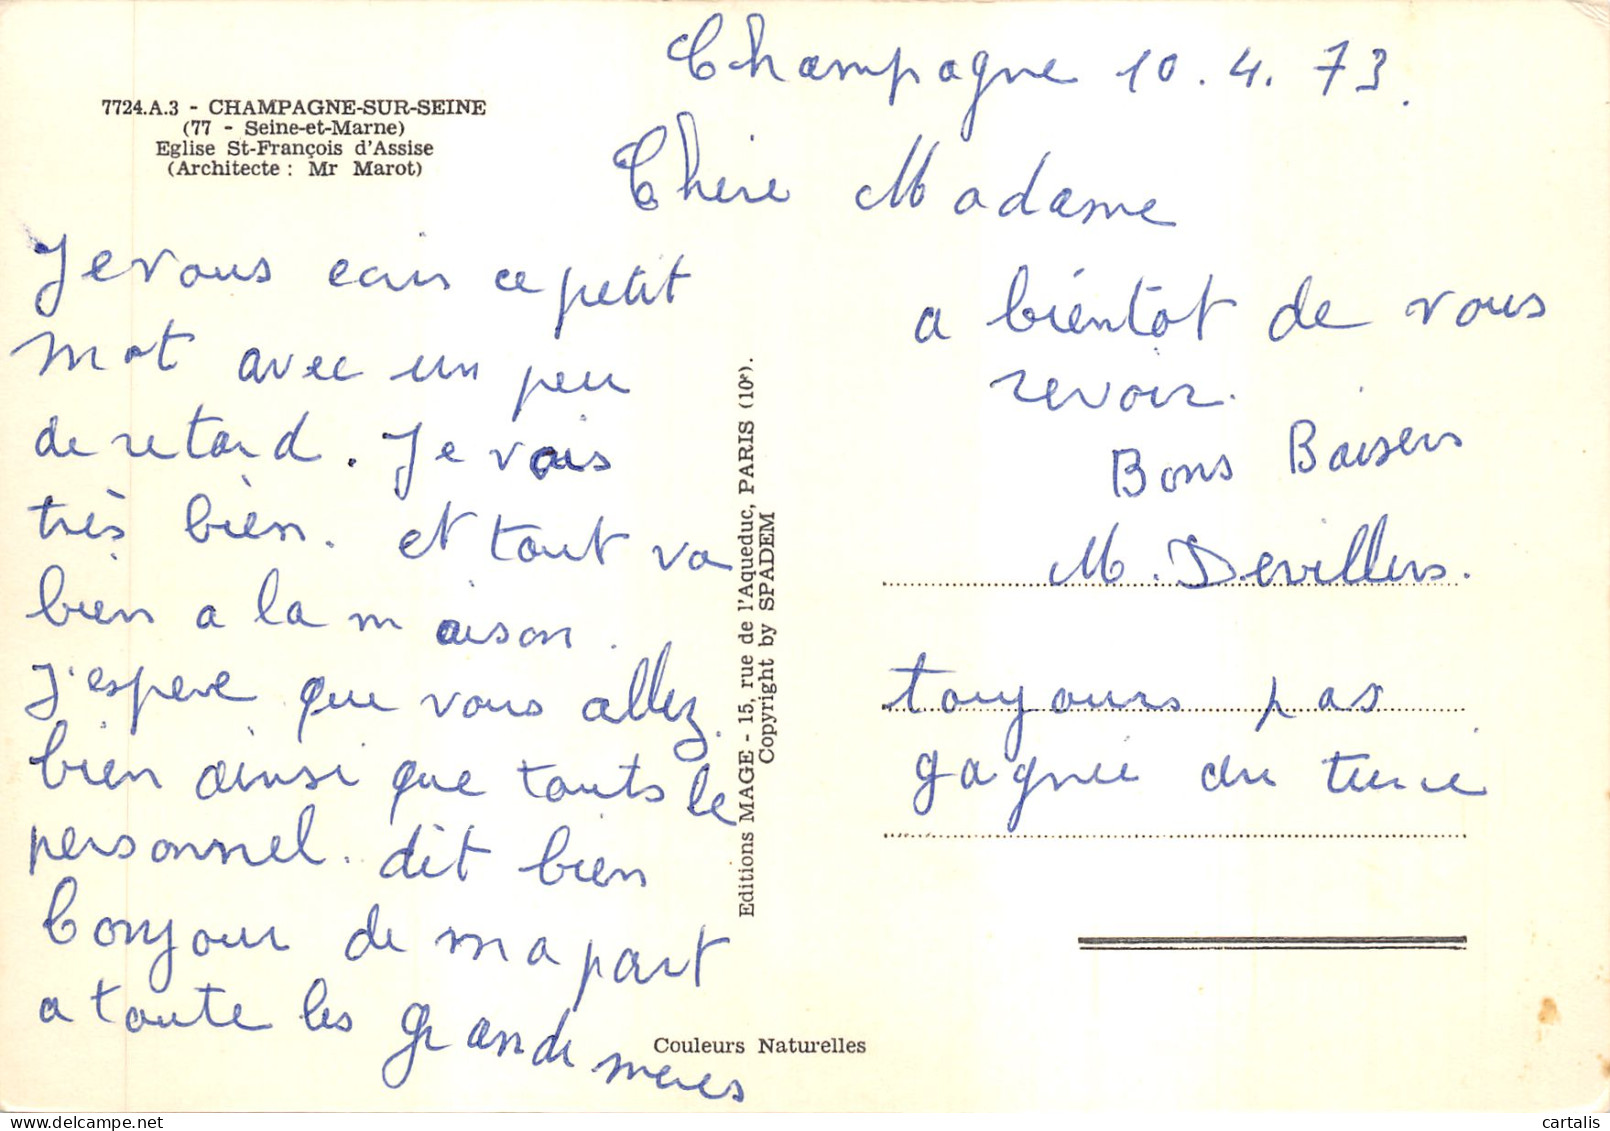 7724.A.3 - CHAMPAGNE-SUR-SEINE
(77 - Seine-et-Marne)
Eglise St-François d'Assise
(Architecte : Mr Marot)
Champagne 10.4.73.
Chere Madame
Je vous ecris ce petit
mot avec un peu
de retard. Je vais
très bien. et tout va
bien a la maison.
J'espere que vous allez
bien ainsi que touts le
personnel. dit bien
bonjour de ma part
a toute les grand meres
a bientot de vous
revoir.
Bons Baisers
M. Devillers.
toujours pas
gagnée au tierce
Editions MAGE - 15, rue de l'Aqueduc, PARIS (10e).
Copyright by SPADEM
Couleurs Naturelles
cartalis